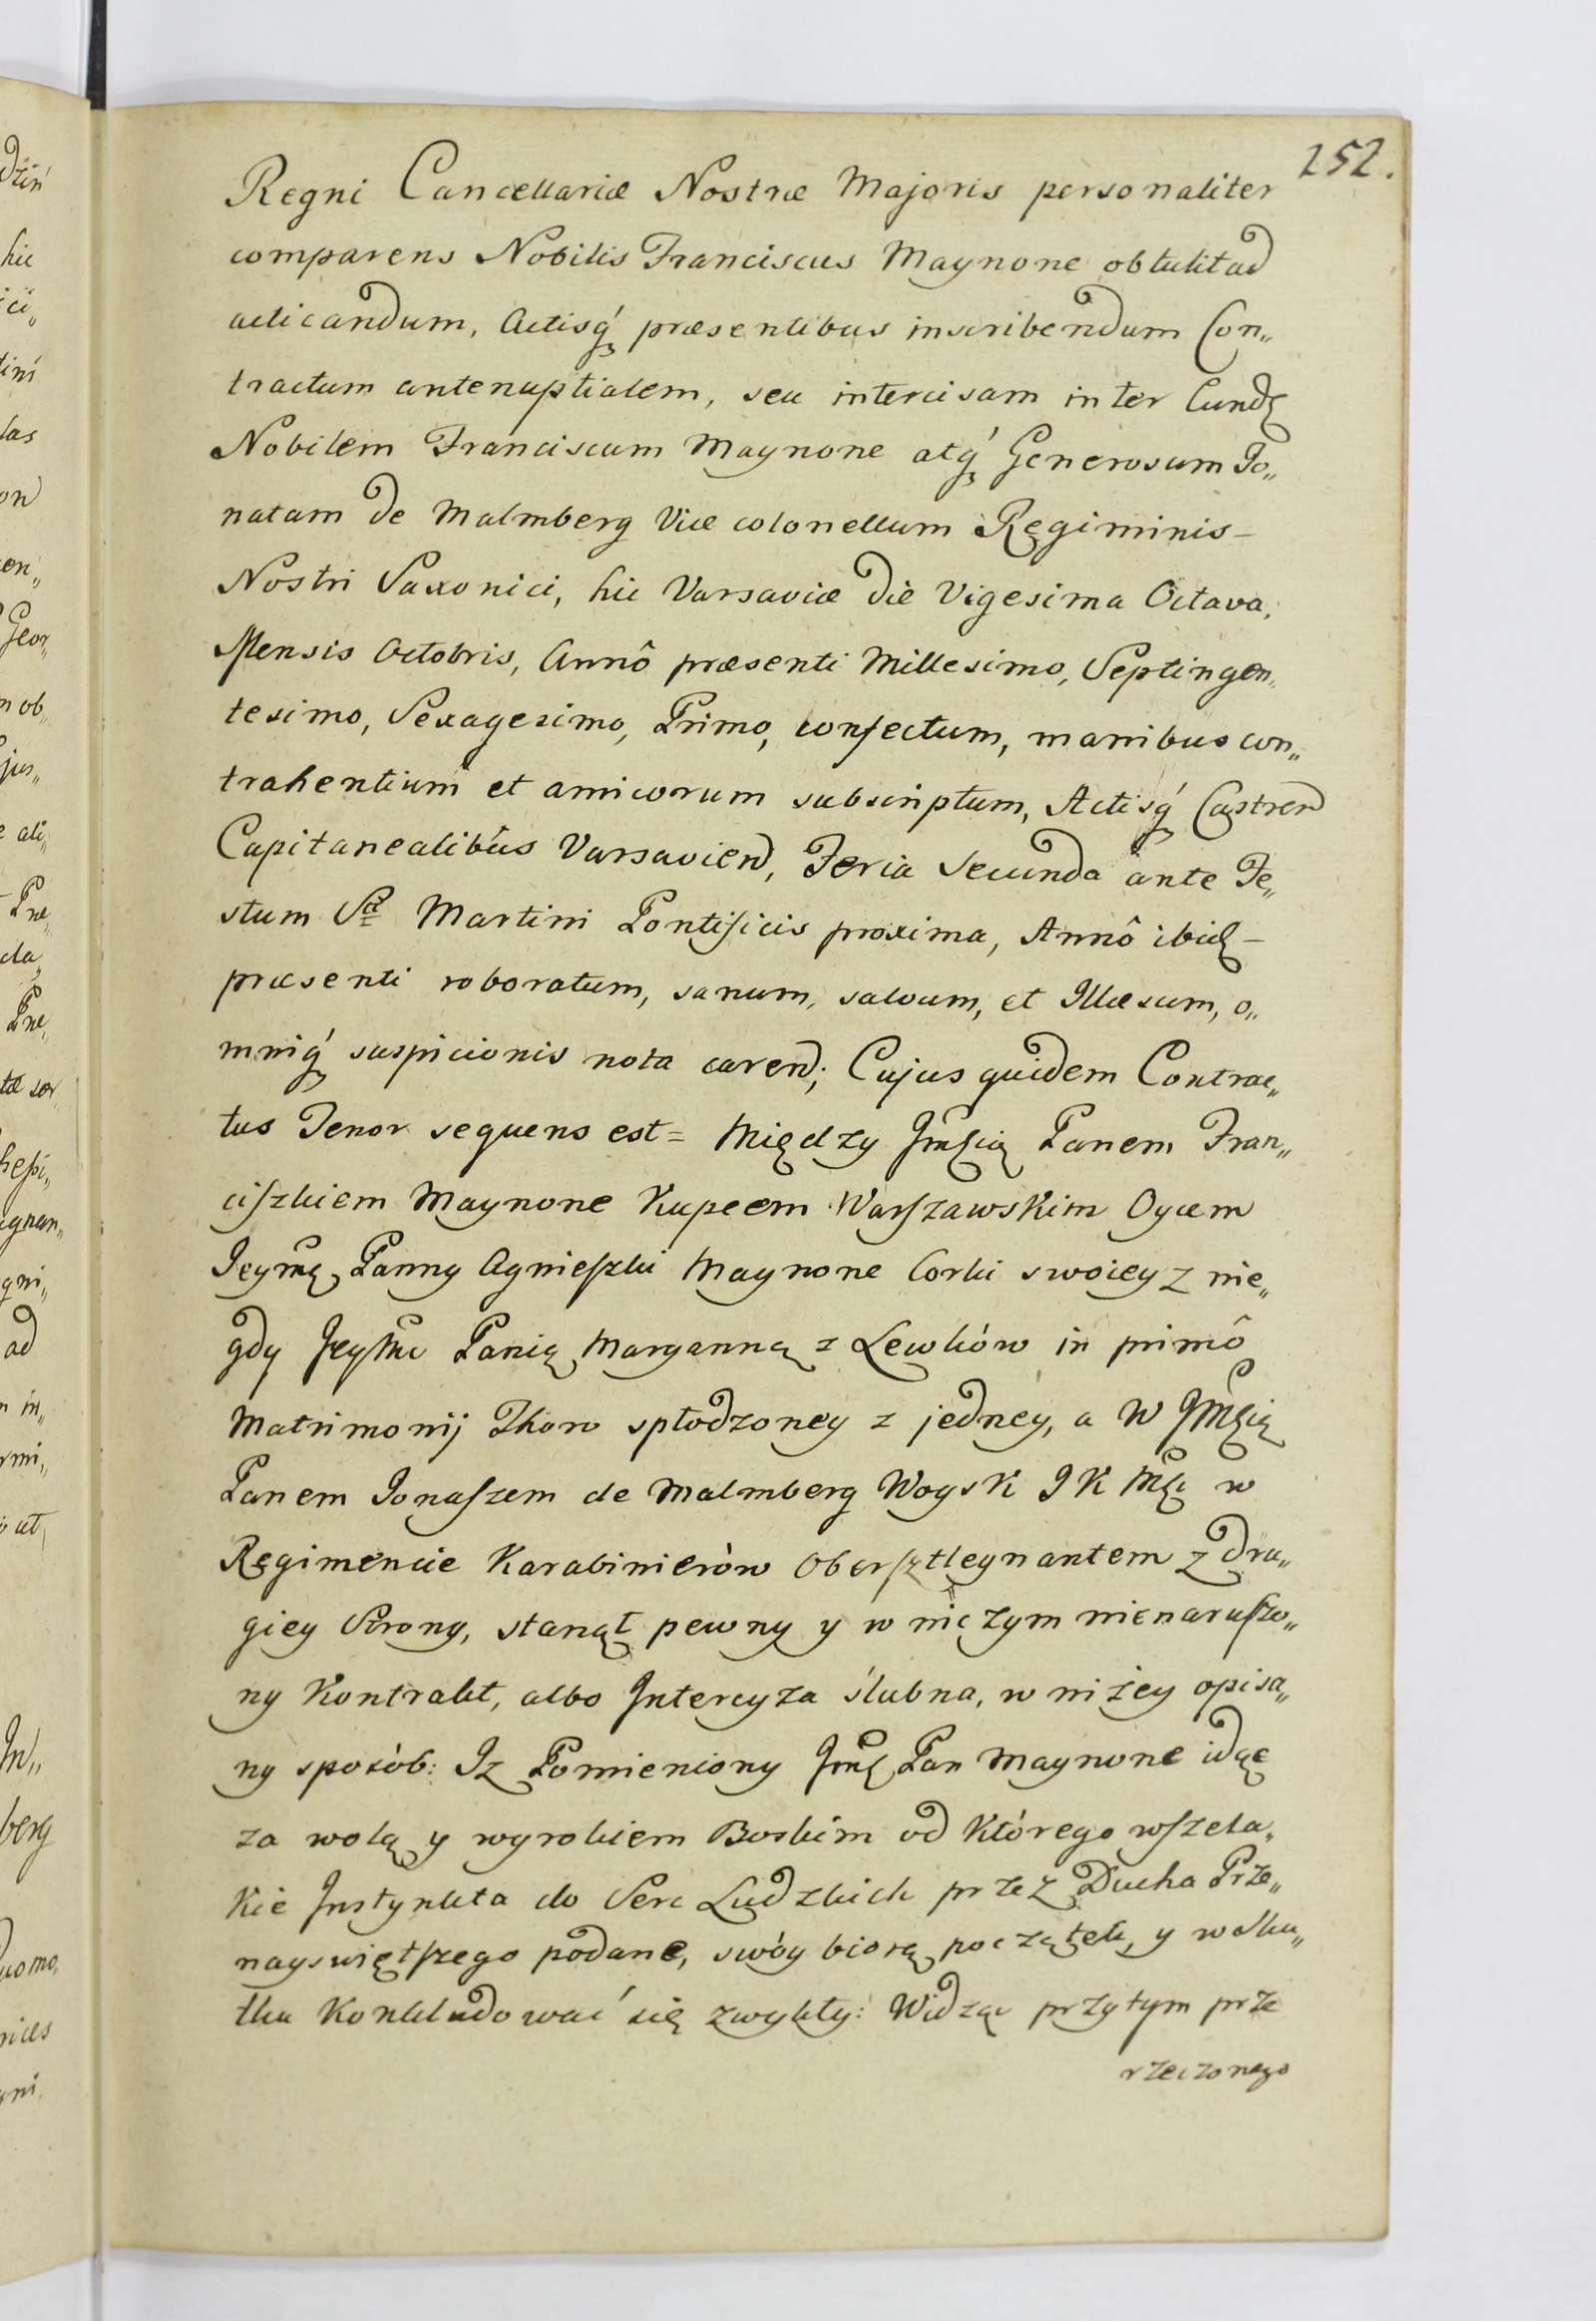 252.
Regni Cancellariæ Nostræ Majoris personaliter
comparens Nobilis Franciscus Maynone obtulit ad
acticandum, Actisq́ præsentibus inscribendum Con„
tractum antenuptialem, seu intercisam inter Eund
Nobilem Franciscum Maynone atq́ Generosum Jo„
natam de Malmberg Vice colonellum Regiminis –
Nostri Saxonici, hic Varsaviæ die Vigesima Octava,
Mensis Octobris, Annô præsenti Millesimo, Septingen„
tesimo, Sexagesimo, Primo, confectum, manibus con„
trahentium et amicorum subscriptum, Actisq́ Castren
Capitanealibus Varsavien, Feria Secunda ante Fe„
stum Sti Martini Pontificis proxima, Annô ibid –
præsenti roboratum, sanum, salvum, et Illæsum, o„
mniq́ suspicionis nota caren; Cujus quidem Contrac„
tus Tenor sequens est = Między Jmcią Panem Fran„
ciſzkiem Maynone Kupcem Warſzawskim Oycem
Jeymę Panny Agnieſzki Maynone Corki swoiey z nie„
gdy Jeymc Panią Maryanną z Lewków in primô
Matrimonij Thoro spłodzoney z jedney, a W Jmcią
Panem Jonaſzem de Malmberg Woysk J K Mci w
Regimencie Karabinierów Oberſztleynantem z dru„
giey Strony, stanął pewny y w niczym nienaruſzo„
ny Kontrakt, albo Intercyza ślubna, w niżey opisa„
ny sposób: Iz Pomieniony Jmć Pan Maynone idąc
za wolą y wyrokiem Boskim od którego wſzela„
kie Instynkta do Serc Ludzkich przez Ducha Prze„
nayswiętſzego podane, swóy biorą początek, y w sku„
tku Konkludować się zwykły: Widząc przytym prze
rzeczonego